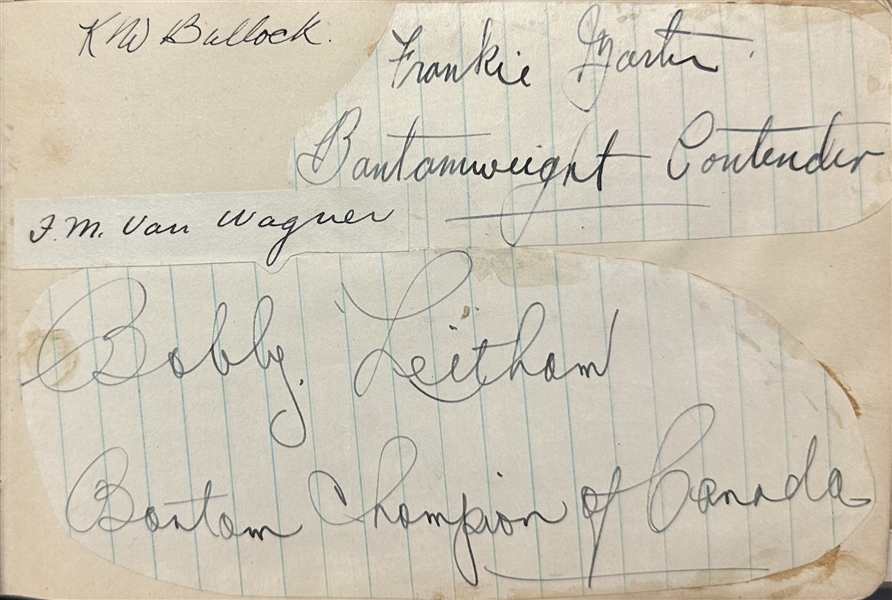 K W Bullock.
Frankie Martin
Bantamweight Contender
F. M. Van Wagner
Bobby Leitham
Bantam Champion of Canada